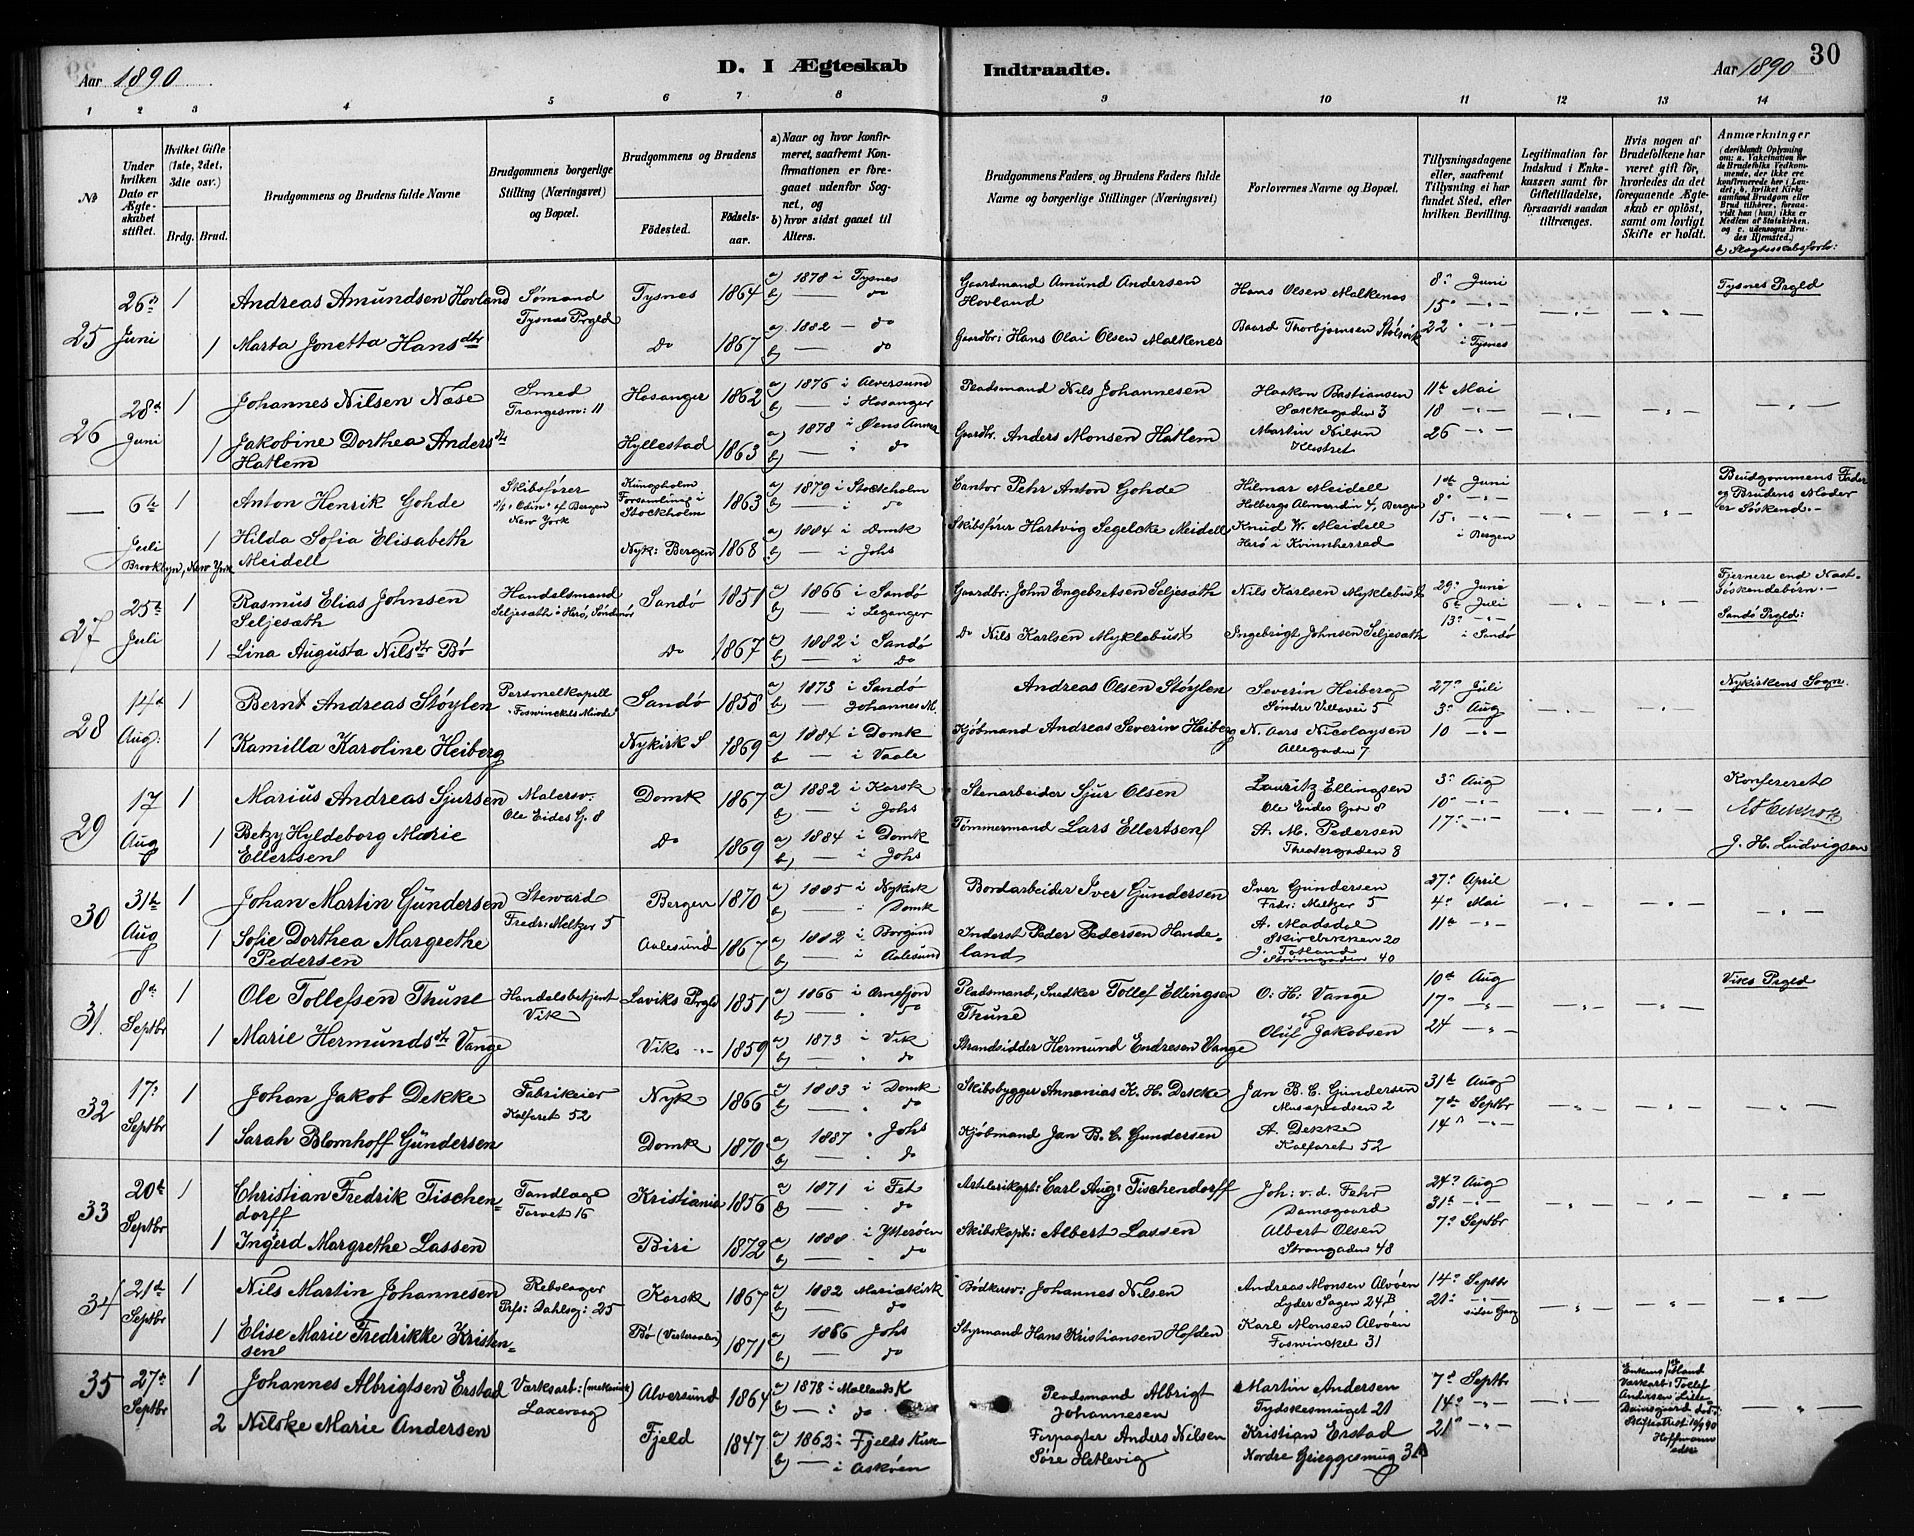 Aar 1890
D. I Ægteskab Indtraadte.
Aar 1890
30
1 2 3 4 5 6 7 8 9 10 11 12 13 14
No
Under hvilken Dato er Ægteskabet stiftet.
Hvilket Gifte (1ste, 2det, 3dte osv.)
Brdg. Brud.
Brudgommens og Brudens fulde Navne
Brudgommens borgerlige Stilling (Næringsvei) og Bopæl.
Brudgommens og Brudens
Fødested.
Fødselsaar.
a) Naar og hvor konfirmeret, saafremt Konfirmationen er foregaaet udenfor Sognet, og
b) hvor sidst gaaet til Alters.
Brudgommens Faders, og Brudens Faders fulde Navne og borgerlige Stillinger (Næringsvei)
Forlovernes Navne og Bopæl.
Tillysningsdagene eller, saafremt Tillysning ei har fundet Sted, efter hvilken Bevilling.
Legitimation for Indskud i Enkekassen samt for Giftetilladelse, forsaavidt saadan tiltrænges.
Hvis nogen af Brudefolkene har været gift før, hvorledes da det foregaaende Ægteskab er opløst, samt om lovligt Skifte er holdt.
Anmærkninger (deriblandt Oplysning om: a. Vakcination for de Brudefolks Vedkommende, der ikke ere konfirmerede her i Landet; b. hvilket Kirkesamfund Brudgom eller Brud tilhører, forsaavidt han (hun) ikke er Medlem af Statskirken, og c. udensogns Brudes Hjemsted.)
25 26 Juni 1 Andreas Amundsen Hovland Sømand Tysnæs Prgld Tysnes 1864 a) 1878 i Tysnes b) — do Gaardmand Amund Andersen Hovland Hans Olsen Malkenes 8 Juni 15 —
1 Marta Jonetta Hansdtr Do 1867 a) 1882 — do b) do Gaardbr: Hans Olai Olsen Malkenes Baard Thorbjørnsen Stolsvik 22 i Tysnes Tysnes Prgld
26 28 Juni 1 Johannes Nilsen Næse Smed Trangesm: 11 Hosanger 1862 a) 1876 i Alversund b) — i Hosanger Pladsmand Nils Johannesen Haakon Bastiansen 3 11te Mai 18 —
1 Jakobine Dorthea Anders Hatlem Hyllestad 1863 a) 1878 i b) do Gaardbr. Anders Monsen Hatlem Martin Nilsen Klostret 26 —
— 6te Juli 1 Anton Henrik Gohde Skibsfører "Odin" af Bergen New York Kungsholm Forsamling i Stockholm 1863 a) 1879 i Stockholm b) — i do Cantor Pehr Anton Gohde Hilmar Meidell Holbergs Almending 4, Bergen 1ste Juni 8 — Brudgommens Fader og Brudens Moder er Søskend.
Brooklyn, New York 1 Hilda Sofia Elisabeth Meidell Nyk: Bergen 1868 a) 1884 i Domk b) — i Johs Skibsfører Hartvig Segelcke Meidell Knud W. Meidell Herø i Kvinnherred 15 — i Bergen
27 25 Juli 1 Rasmus Elias Johnsen Seljesæth Handelsmand Seljesæth i Herø, Søndmør Sandø 1851 a) 1866 i Sandø b) — i Leganger Gaardbr: John Engebretsen Seljesæth Nils Karlsen Myklebust 29 Juni 6te Juli Fjernere end Næst-Søskendebørn.
1 Lina Augusta Nilsdtr Bø Do 1867 a) 1882 i Sandø b) — i Do Do Nils Karlsen Myklebust Ingebrigt Johnsen Seljesæth 13 — i Sandø Sandø Prgld:
28 14 Aug: 1 Bernt Andreas Støylen Personelkapell Sandø 1858 a) 1873 i Sandø b) — Johannes M. Andreas Olsen Støylen Severin Heiberg Søndre Villavei 5 27 Juli 3 Aug Nykirkens Sogn.
1 Kamilla Karoline Heiberg Nykirk S 1869 a) 1884 i Domk b) — i Vaale Kjøbmand Andreas Severin Heiberg N. Aars Nicolaysen Allegaden 7 10 —
29 17 Aug 1 Marius Andreas Sjursen Malersv. Ole Eides G. 8 Domk 1867 a) 1882 i Korsk b) — i Johs Stenarbeider Sjur Olsen Lauritz Ellingsen Ole Eides Gade 8 3 Aug 10 — Konfereret
1 Betzy Hyldeborg Marie Ellertsen Do 1869 a) 1884 i Domk b) — i Johs Tømmermand Lars Ellertsen A. M. Pedersen Theatergaden 8 17 — J. H. Ludvigsen
30 31te Aug 1 Johan Martin Gundersen Steward Fredr: Meltzer 5 Bergen 1870 a) 1885 i Nykirk b) — Domk Bordarbeider Iver Gundersen Iver Gundersen Fredr: Meltzer 5 27 April 4 Mai
1 Sofie Dorthea Margrethe Pedersen Aalesund 1867 a) 1882 i Borgund b) — i Aalesund Inderst Peder Pedersen Handeland A. Madsdal Skivebakken 20 J. Totland Strømgaden 40 11te —
31. 8 Septbr 1 Ole Tollefsen Thune Handelsbetjent Vik Laviks Prgld 1851 a) 1866 i Arnefjord b) — do Pladsmand, Snedker Tollef Ellingsen Thune O: H: Vange og 10de Aug 17 — Viks Prgld
1 Marie Hermundsdtr Vange Viks 1859 a) 1873 i Vik b) — do Strandsidder Hermund Endresen Vange Oluf Jakobsen 24 —
32 17 Septbr 1 Johan Jakob Dekke Fabrikeier Kalfaret 52 Nyk 1866 a) 1883 i Domk b) — do Skibsbygger Annanias K. H. Dekke Jan B. C. Gundersen Museplads 2 31te Aug 7de Septbr
1 Sarah Blomhoff Gundersen Domk 1870 a) 1887 Johs b) — do Kjøbmand Jan B. C. Gundersen A. Dekke Kalfaret 52 14 —
33 20 Septbr 1 Christian Fredrik Tischendorff Tandlæge Torvet 16 Kristiania 1856 a) 1871 i Fet b) — do Artillerikapt: Carl Aug: Tischendorff Joh: v. d. Fehr Damsgaard 24 Aug 31te —
1 Ingerd Margrethe Lassen Biri 1872 a) 1888 i Ytterøen b) do Skibskapt: Albert Lassen Albert Olsen Strangaden 48 7 Septbr
34 21 Septbr 1 Nils Martin Johannesen Rebslager Prfs: Dahlsg: 25 Korsk 1867 a) 1882 Mariækirk b) — do Bødkersv: Johannes Nilsen Andreas Monsen Alvøen Lyder Sagen 24B 14 Septbr 21 — sidste Gang
1 Elise Marie Fredrikke Kristensen Bø (Vesteraalen) 1871 a) 1866 Johs b) — do Styrmand Hans Kristiansen Hofden Karl Monsen Alvøen Foswinckel 31
35 27 Septbr 1 Johannes Albrigtsen Erstad Værksarb: (mekanisk) Laxevaag Alversund 1864 a) 1878 i b) — i do Pladsmand Albrigt Johannesen Martin Andersen Tydskesmuget 21 7 Septbr 14 —
2 Nilske Marie Andersen Fjeld 1847 a) 1862 i Fjelds Kirk b) — i Askøen Forpagter Anders Nilsen Søre Hetlevig Kristian Erstad Nordre Grieggesmug 3A 21 — Enkens Mand Værkarb: Tollef Andersen Damsgaard død: Skifteattest 10/9 90 Hoffmann